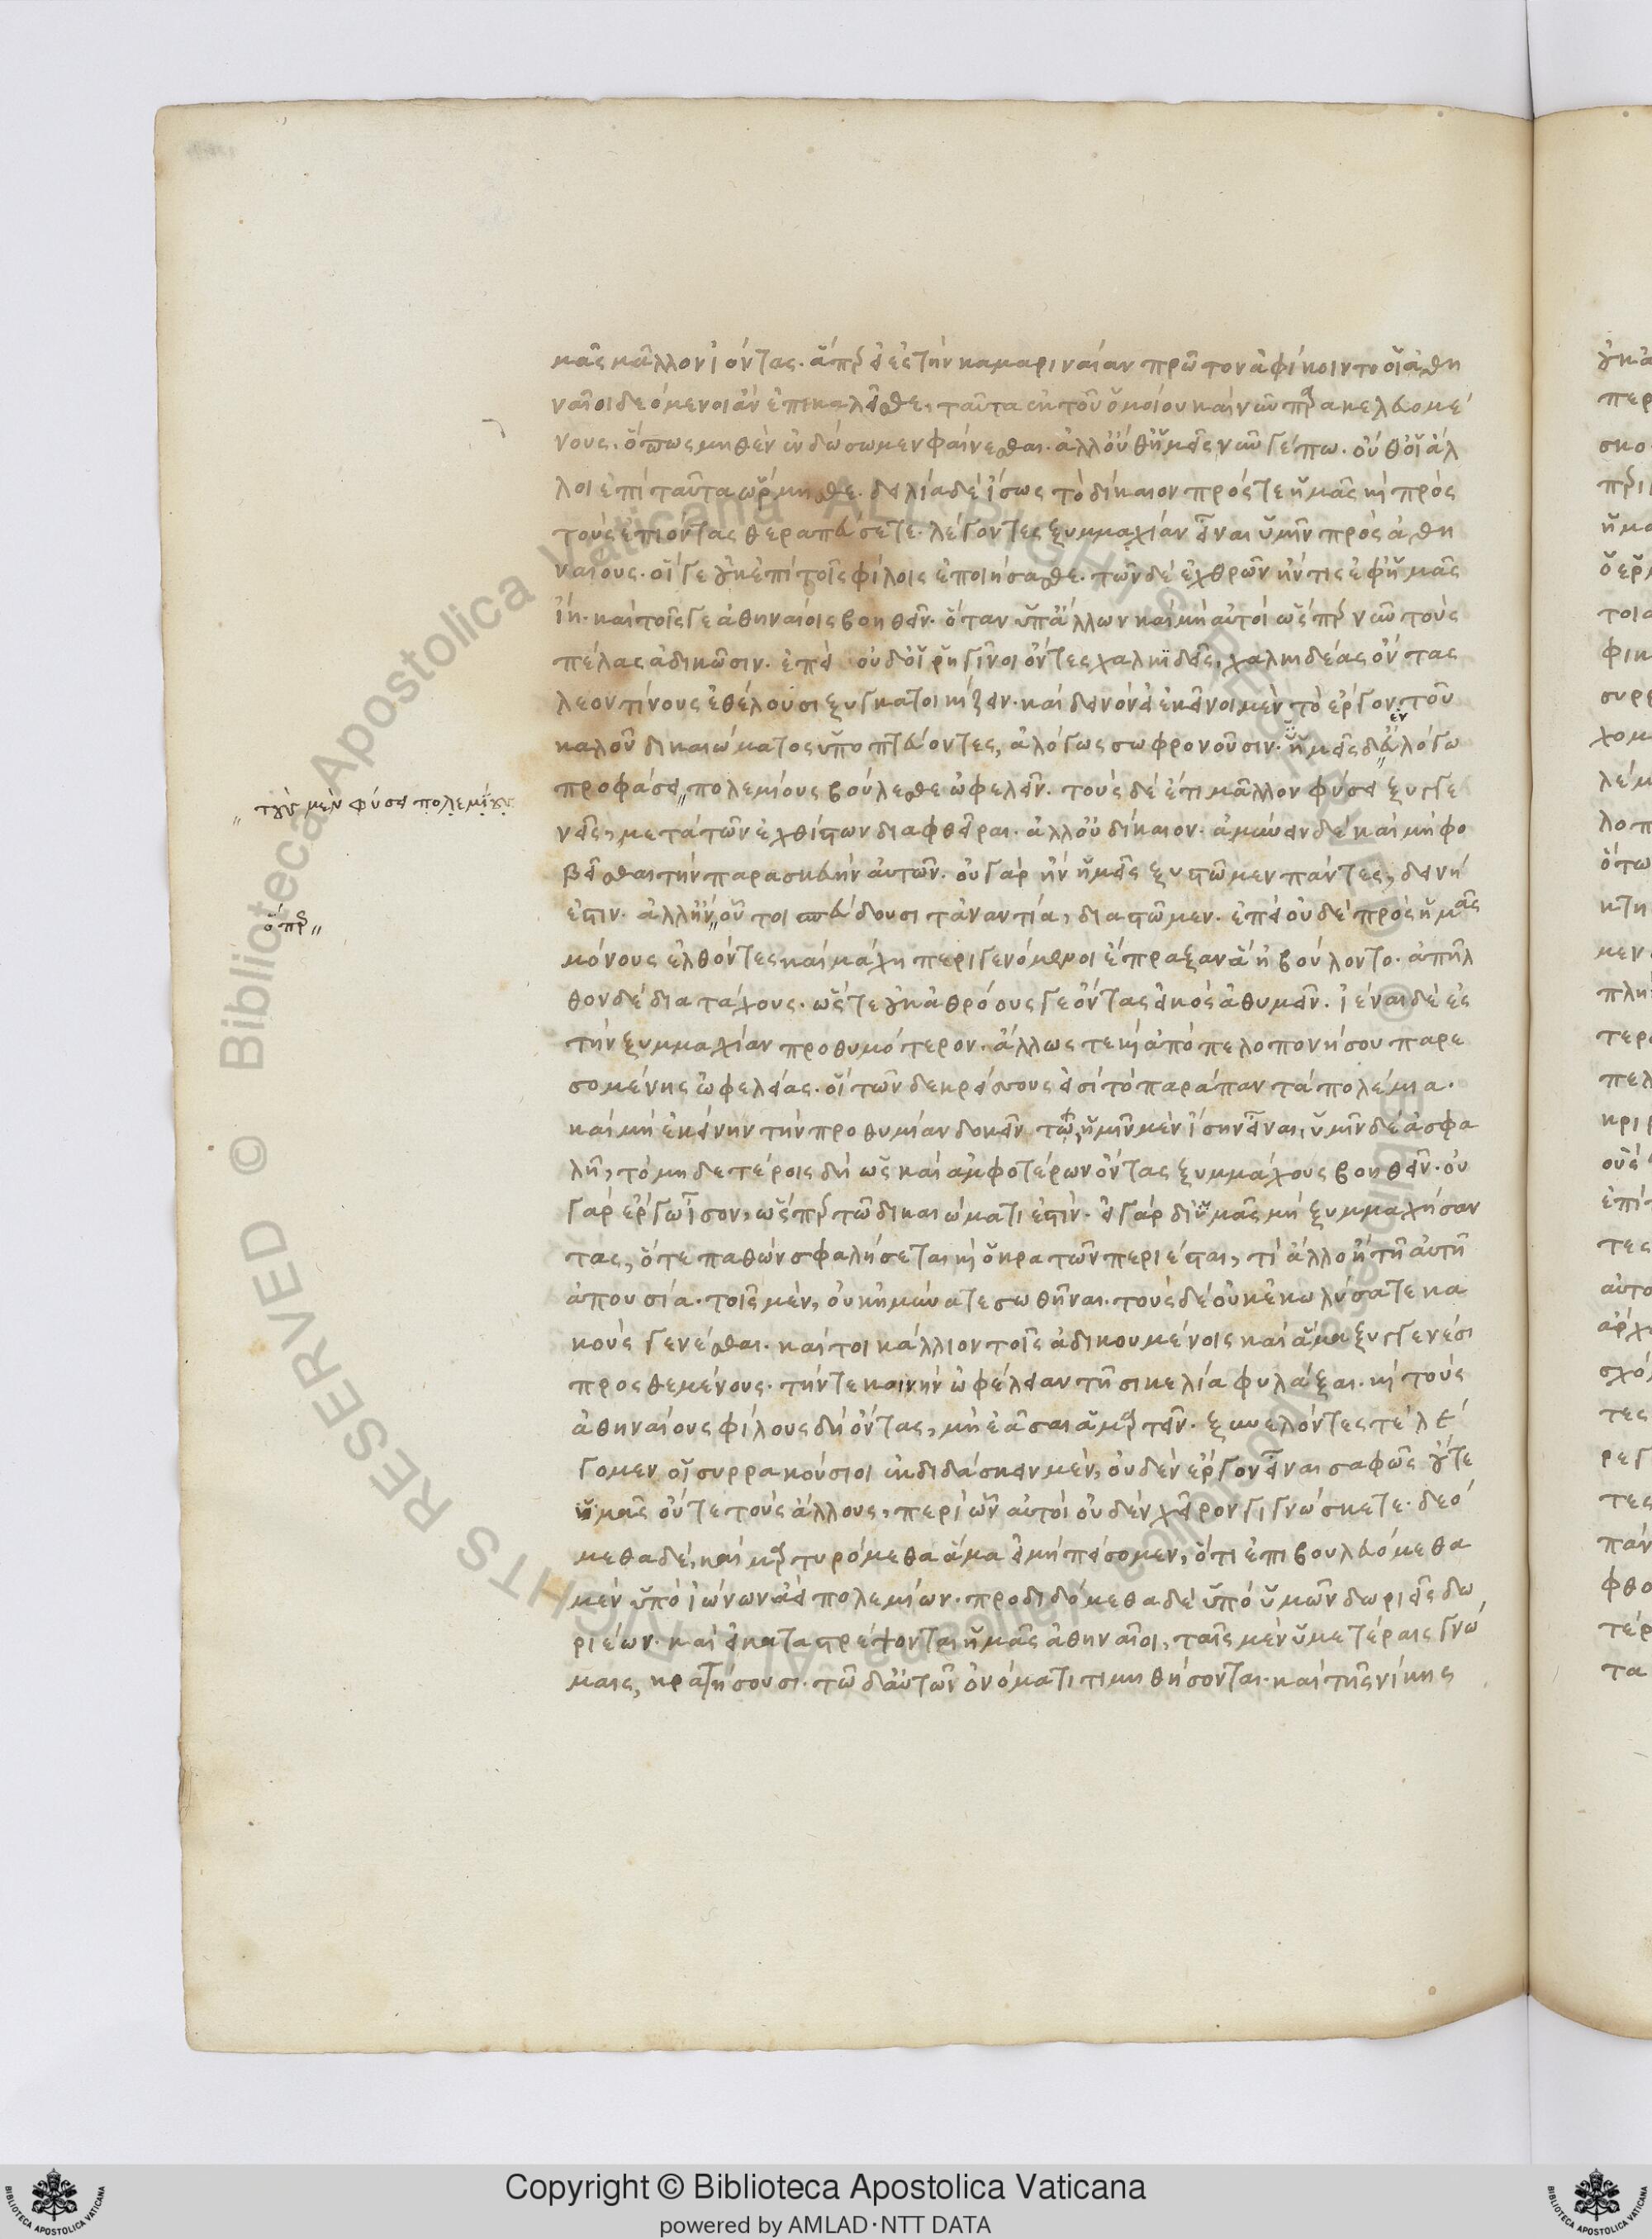 μᾶς μᾶλλον ἰόντας. ἅπερ εἰ ἐς τὴν καμαριναίαν πρῶτον ἀφίκοιντο οἱ ἀθη
ναῖοι δεόμενοι ἂν ἐπικαλεῖσθε, ταῦτα ἐκ τοῦ ὁμοίου καὶ νῦν παρακελευομέ
νους, ὅπως μηθὲν ἐνδώσωμεν φαίνεσθαι. ἀλλ' οὔθ' ἡμεῖς νῦν γέ πω. οὔθ' οἱ ἄλ
λοι ἐπὶ ταῦτα ὥρμησθε. δειλίᾳ δὲ ἴσως τὸ δίκαιον πρός τε ἡμᾶς καὶ πρὸς
τοὺς ἐπιόντας θεραπεύσετε. λέγοντες ξυμμαχίαν εἶναι ὑμῖν πρὸς ἀθη
ναίους. ἥν γε οὐκ ἐπὶ τοῖς φίλοις ἐποιήσασθε. τῶν δὲ ἐχθρῶν ἤν τις ἐφ' ἡμᾶς
ἴῃ. καὶ τοῖς γε ἀθηναίοις βοηθεῖν. ὅταν ὑπ' ἄλλων καὶ μὴ αὐτοὶ ὥσπερ νῦν τοὺς
πέλας ἀδικῶσιν. ἐπεὶ οὐδ' οἱ ῥηγῖνοι ὄντες χαλκιδεῖς, χαλκιδέας ὄντας
λεοντίνους ἐθέλουσι ξυγκατοικίζειν. καὶ δεινὸν εἰ ἐκεῖνοι μὲν τὸ ἔργον τοῦ
καλοῦ δικαιώματος ὑποπτεύοντες, ἀλόγως σωφρονοῦσιν. ὑμεῖς δ' εὐλόγῳ
προφάσει πολεμίους βούλεσθε ὠφελεῖν. τοὺς δὲ ἔτι μᾶλλον φύσει ξυγγε
νεῖς, μετὰ τῶν ἐχθίστων διαφθεῖραι. ἀλλ' οὐ δίκαιον. ἀμύνειν δὲ καὶ μὴ φο
βεῖσθαι τὴν παρασκευὴν αὐτῶν. οὐ γὰρ ἢν ἡμεῖς ξυστῶμεν πάντες, δεινή
ἐστιν. ἀλλ' ἤν, οὗτοι σπεύδουσι τἀναντία, διαστῶμεν. ἐπεὶ οὐδὲ πρὸς ἡμᾶς
μόνους ἐλθόντες καὶ μάχῃ περιγενόμενοι ἔπραξαν ἃ ἠβούλοντο. ἀπῆλ
θον δὲ διὰ τάχους. ὥστε οὐκ ἀθρόους γε ὄντας εἰκὸς ἀθυμεῖν. ἰέναι δὲ ἐς
τὴν ξυμμαχίαν προθυμότερον. ἄλλως τε καὶ ἀπὸ πελοπονήσου παρε
σομένης ὠφελείας. οἳ τῶνδε κρείσσους εἰσὶ τὸ παράπαν τὰ πολέμια.
καὶ μὴ ἐκείνην τὴν προθυμίαν δοκεῖν τῳ, ἡμῖν μὲν ἴσην εἶναι, ὑμῖν δὲ ἀσφα
λῆ, τὸ μηδετέροις δὴ ὡς καὶ ἀμφοτέρων ὄντας ξυμμάχους βοηθεῖν. οὐ
γὰρ ἔργῳ ἴσον, ὥσπερ τῷ δικαιώματι ἐστίν. εἰ γὰρ δι' ὑμᾶς μὴ ξυμμαχήσαν
τας, ὅ τε παθὼν σφαλήσεται καὶ ὁ κρατῶν περιέσται, τί ἄλλο ἢ τῇ αὐτῇ
ἀπουσίᾳ. τοῖς μὲν, οὐκ ἠμύνατε σωθῆναι. τοὺς δὲ οὐκ ἐκωλύσατε κα
κοὺς γενέσθαι. καίτοι κάλλιον τοῖς ἀδικουμένοις καὶ ἅμα ξυγγενέσι
προσθεμένους. τήν τε κοινὴν ὠφέλειαν τῇ σικελίᾳ φυλάξαι. καὶ τοὺς
ἀθηναίους φίλους δὴ ὄντας, μὴ ἐᾶσαι ἁμαρτεῖν. ξυνελόντες τὲ λέ
γομεν οἱ συρρακούσιοι ἐκδιδάσκειν μὲν, οὐδὲν ἔργον εἶναι σαφῶς οὔτε
ὑμᾶς οὔτε τοὺς ἄλλους, περὶ ὧν αὐτοὶ οὐδὲν χεῖρον γιγνώσκετε. δεό
μεθα δὲ, καὶ μαρτυρόμεθα ἅμα εἰ μὴ πείσομεν, ὅτι ἐπιβουλευόμεθα
μὲν ὑπὸ ἰώνων ἀεὶ πολεμίων. προδιδόμεθα δὲ ὑπὸ ὑμῶν δωριεῖς δω
ριέων. καὶ εἰ καταστρέψονται ἡμᾶς ἀθηναῖοι, ταῖς μὲν ὑμετέραις γνώ
μαις, κρατήσουσι. τῷ δ' αὑτῶν ὀνόματι τιμηθήσονται. καὶ τῆς νίκης
τοὺς μὲν φύσει πολεμίους
ὅπερ
Copyright © Biblioteca Apostolica Vaticana
powered by AMLAD·NTT DATA